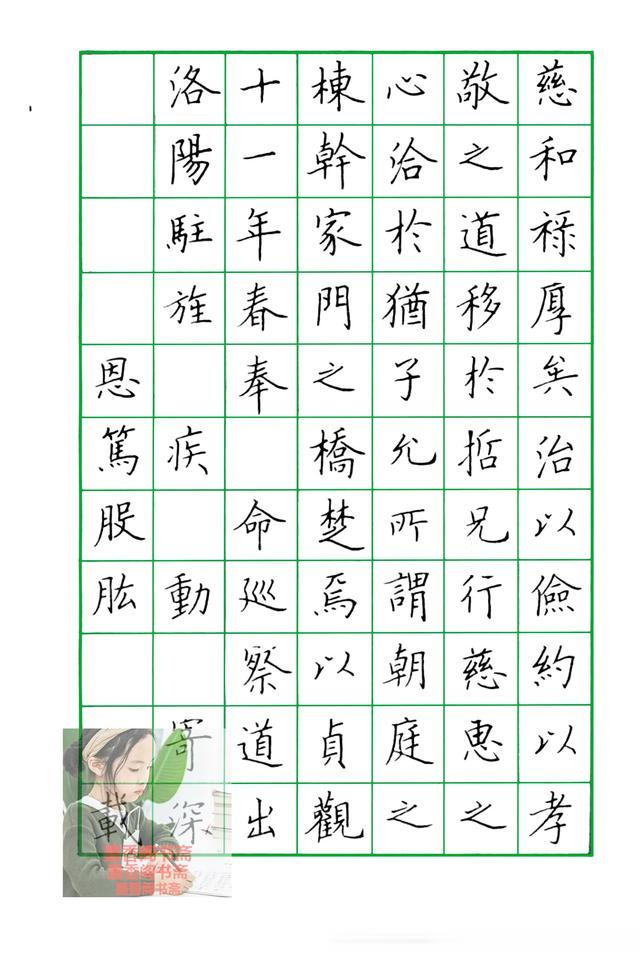 慈和祿厚矣治以儉約以孝
敬之道移於哲兄行慈惠之
心洽於猶子允所謂朝庭之
棟幹家門之橋楚焉以貞觀
十一年春奉 命巡察道出
洛陽駐旌 疾 動 寄深
恩篤股肱 載
書斋
书斋
书斋